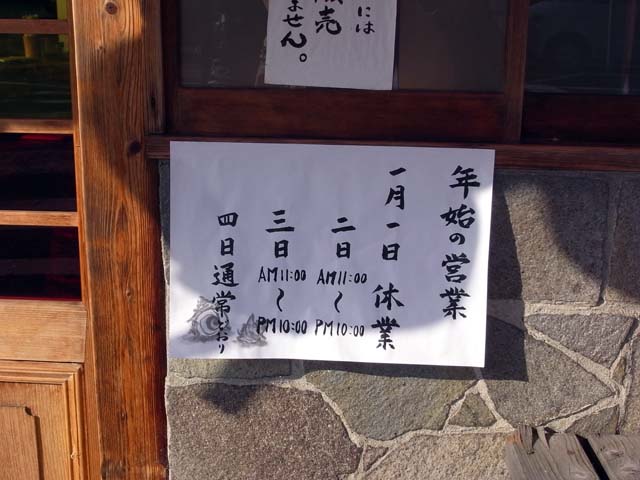 には
販売
ません。
年始の営業
一月一日 休業
二日 AM11:00〜PM10:00
三日 AM11:00〜PM10:00
四日通常どおり